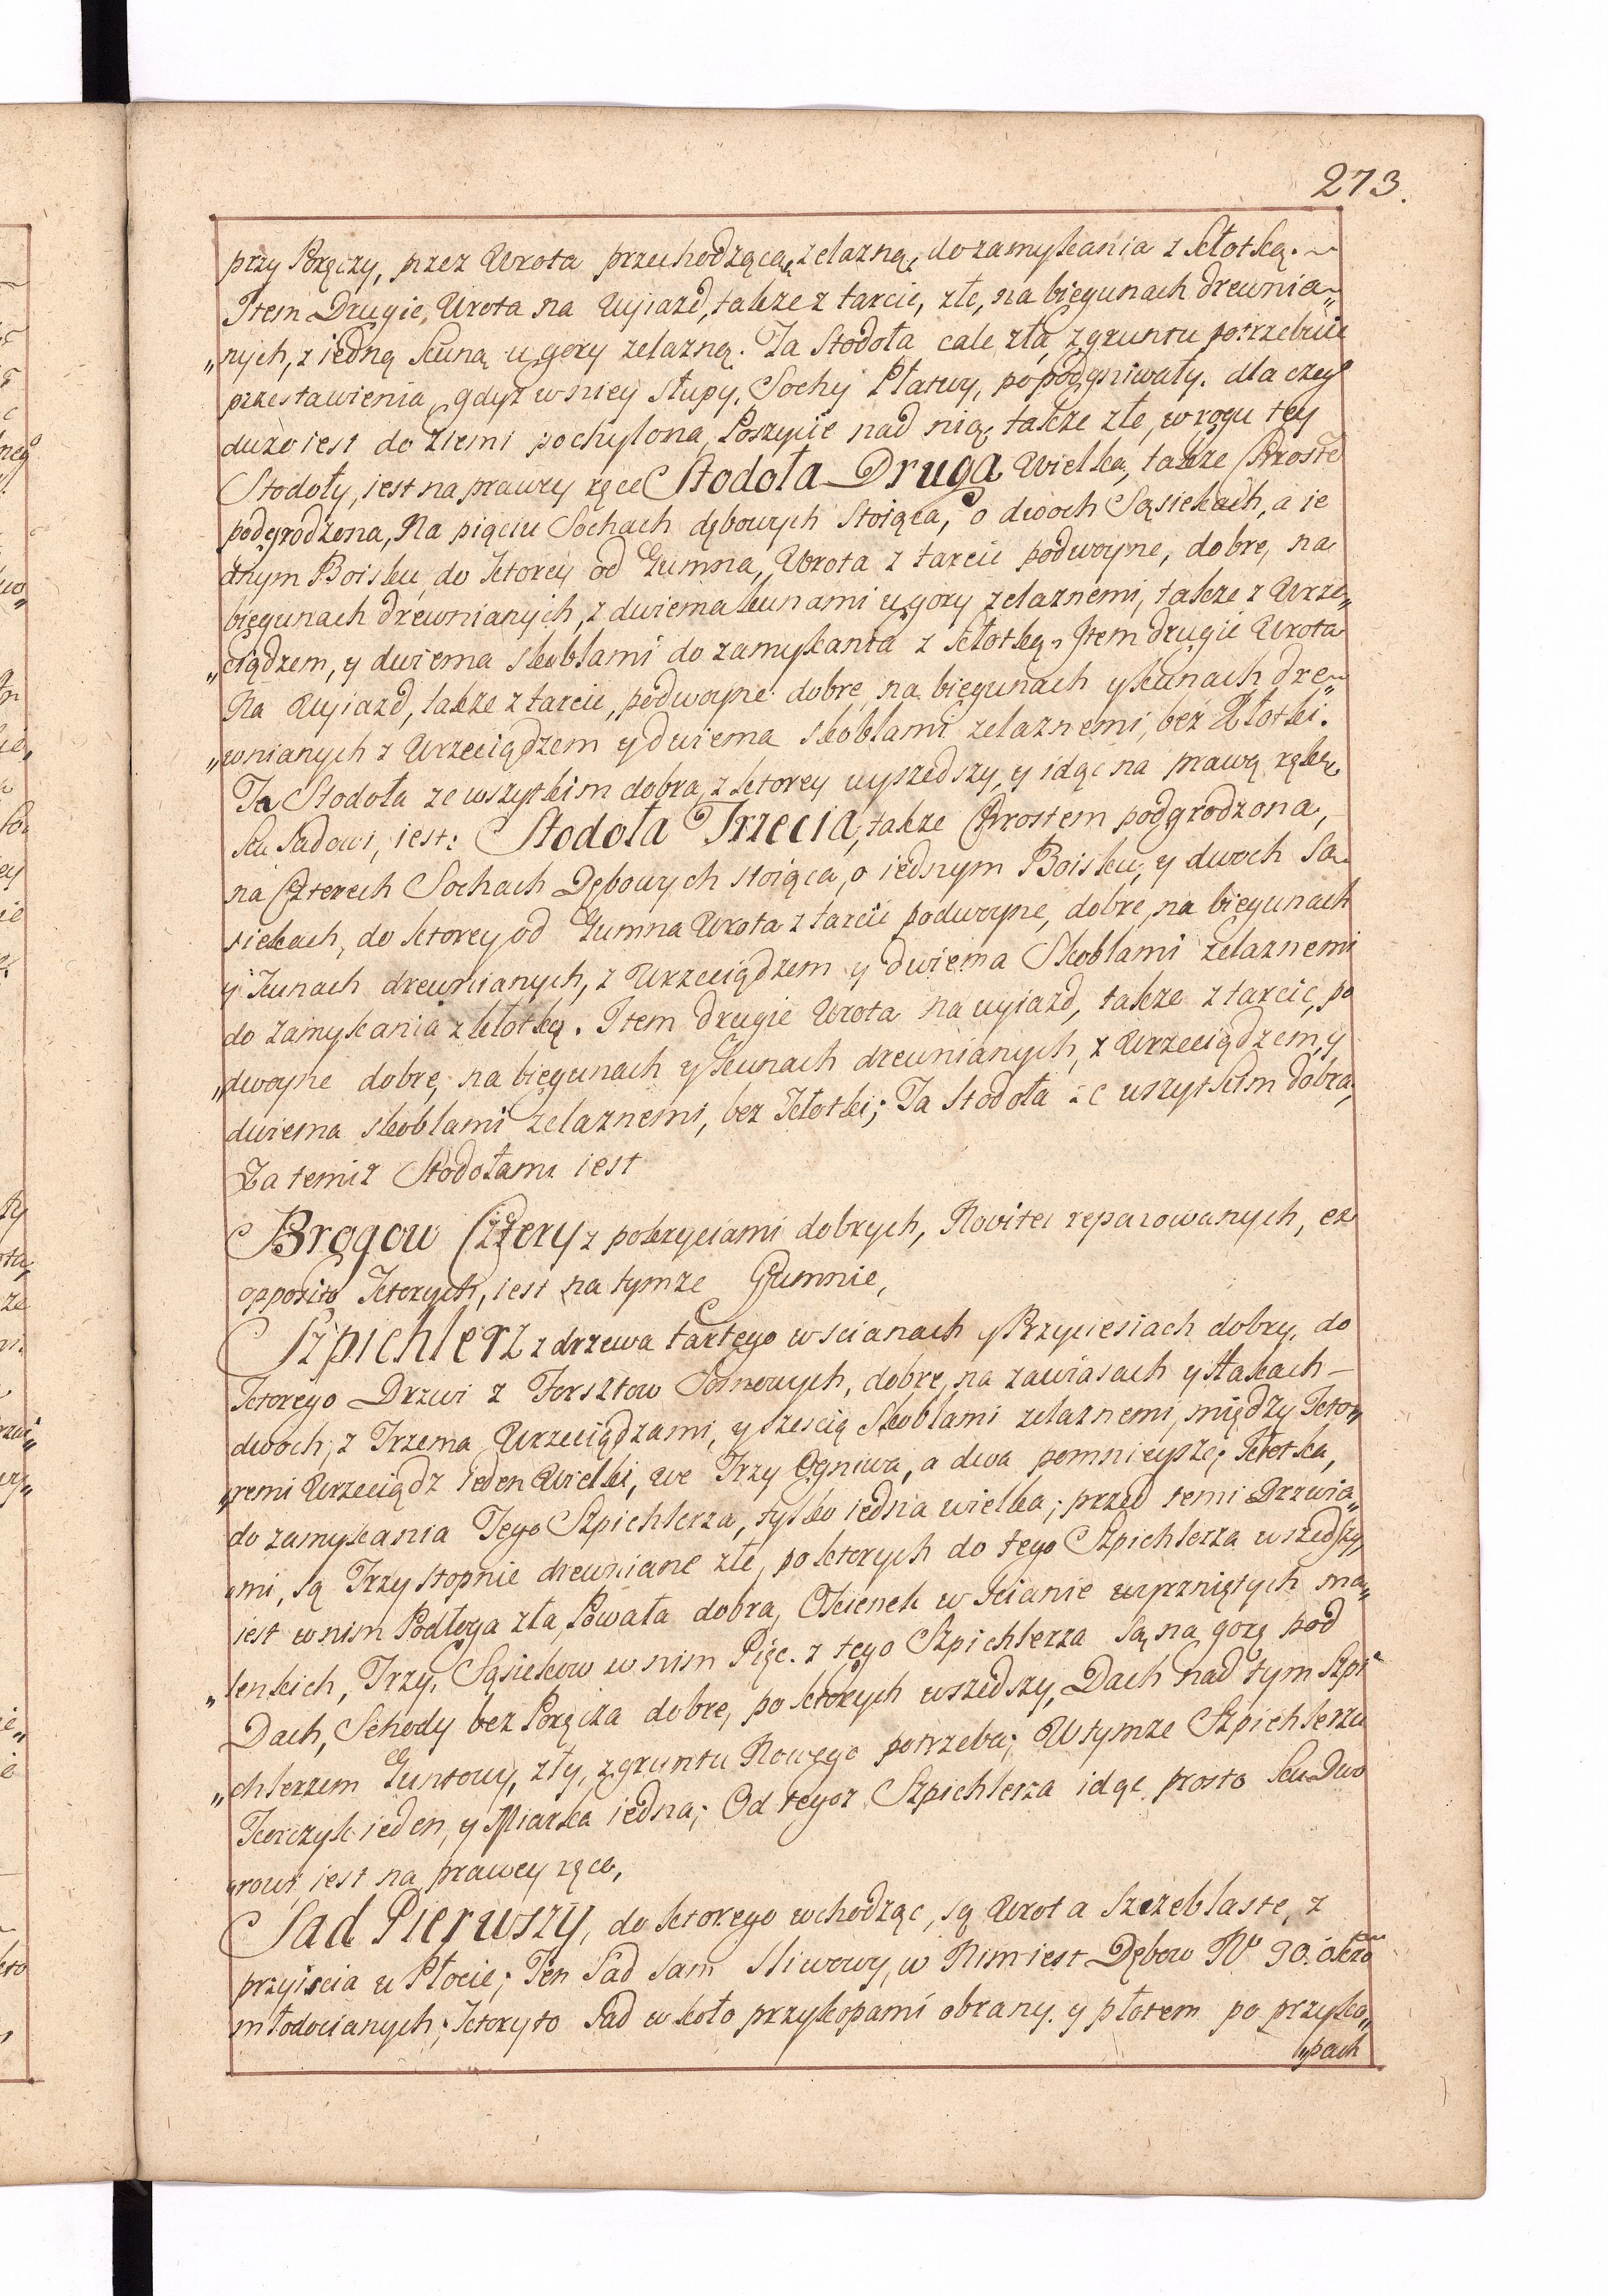 273.
przy Poręczy, przez Wrota przechodzącą, zelazną, do zamykania z kłotką.~
Item Drugie, Wrota na Wyiazd, takze z tarcic, złe, na biegunach drewnia„
„nych, z iedną kuną u gory zelazną. Ta Stodoła cale zła, z gruntu potrzebuie
przestawienia, gdyz w niey słupy, Sochy Płatwy, popodgniwały. dla czeg°
duzo iest do ziemi pochylona, Poszycie nad nią takze złe, w rogu tey
Stodoły, iest na prawey ręce Stodoła Druga Wielka, takze Chroste
podgrodzona, Na pięciu Sochach dębowych stoiąca, o dwoch Sąsiekach, a ie
dnym Boisku, do ktorey od Gumna, Wrota z tarcic podwoyne, dobre, na
biegunach drewnianych, z dwiema kunami u gory zelaznemi, takze z Wrze„
„ciądzem, y dwiema skoblami do zamykania z kłotką, Item drugie Wrota
Na Wyiazd, takze z tarcic, podwoyne dobre na biegunach y kunach dre„
„wnianych z Wrzeciądzem y dwiema skoblami zelaznemi, bez Kłotki.
Ta Stodoła ze wszytkim dobra, z ktorey wyszedszy, y idąc na prawą rękę
ku Sadowi, iest: Stodoła Trzecia, takze Chrostem podgrodzona,
na Czterech Sochach Dębowych stoiąca, o iednym Boisku, y dwoch Sa
siekach, do ktorey od Gumna Wrota z tarcic podwoyne, dobre, na biegunach
y Kunach drewnianych, z Wrzeciądzem y dwiema Skoblami zelaznemi
do zamykania z kłotką. Item drugie Wrota na wyiazd, takze z tarcic, po
„dwoyne dobre, na biegunach y Kunach drewnianych, z Wrzeciądzem, y
dwiema skoblami zelaznemi, bez Kłotki; Ta Stodoła ze wszytkim dobra,
Za temiz Stodołami iest
Brogow Cztery z pokryciami dobrych, Noviter reparowanych, ex
opposito Ktorych, iest na tymze Gumnie,
Szpichlerz z drzewa tartego w scianach y Przyciesiach dobry, do
Ktorego Drzwi z Forsztow Sosnowych, dobre, na zawiasach y Hakach –
dwoch, z Trzema Wrzeciądzami, y szescią Skoblami zelaznemi, między Kto„
„remi Wrzeciądz ieden Wielki, we Trzy Ogniwa, a dwa pomnieysze; Kłotka,
do zamykania Tego Szpichlerza, tylko iedna wielka; przed temi Drzwia„
„mi, są Trzy stopnie drewniane złe, po ktorych do tego Szpichlerza wszedszy,
iest w nim Podłoga zła, Powała dobra, Okienek w scianie wyrzniętych ma„
„lenkich, Trzy. Sąsiekow w nim Pięc. z tego Szpichlerza są na gorę pod
Dach, Schody bez Poręcza dobre, po ktorych wszedszy, Dach nad tym Szpi„
„chlerzem Guntowy, zły, z gruntu Nowego potrzeba; W tymze Szpichlerzu
Korczyk ieden, y Miarka iedna; Od tegoz Szpichlerza idąc prosto ku Dwo
„rowi iest na prawey ręce,
Sad Pierwszy, do ktorego wchodząc, są Wrota Szczeblaste, z
przyiscia w Płocie; Ten Sad sam Sliwowy, w Nim iest Dębow N° 90. okro
młodocianych; Ktory to Sad w koło przykopami obrany. y płotem po przyko„
„pach